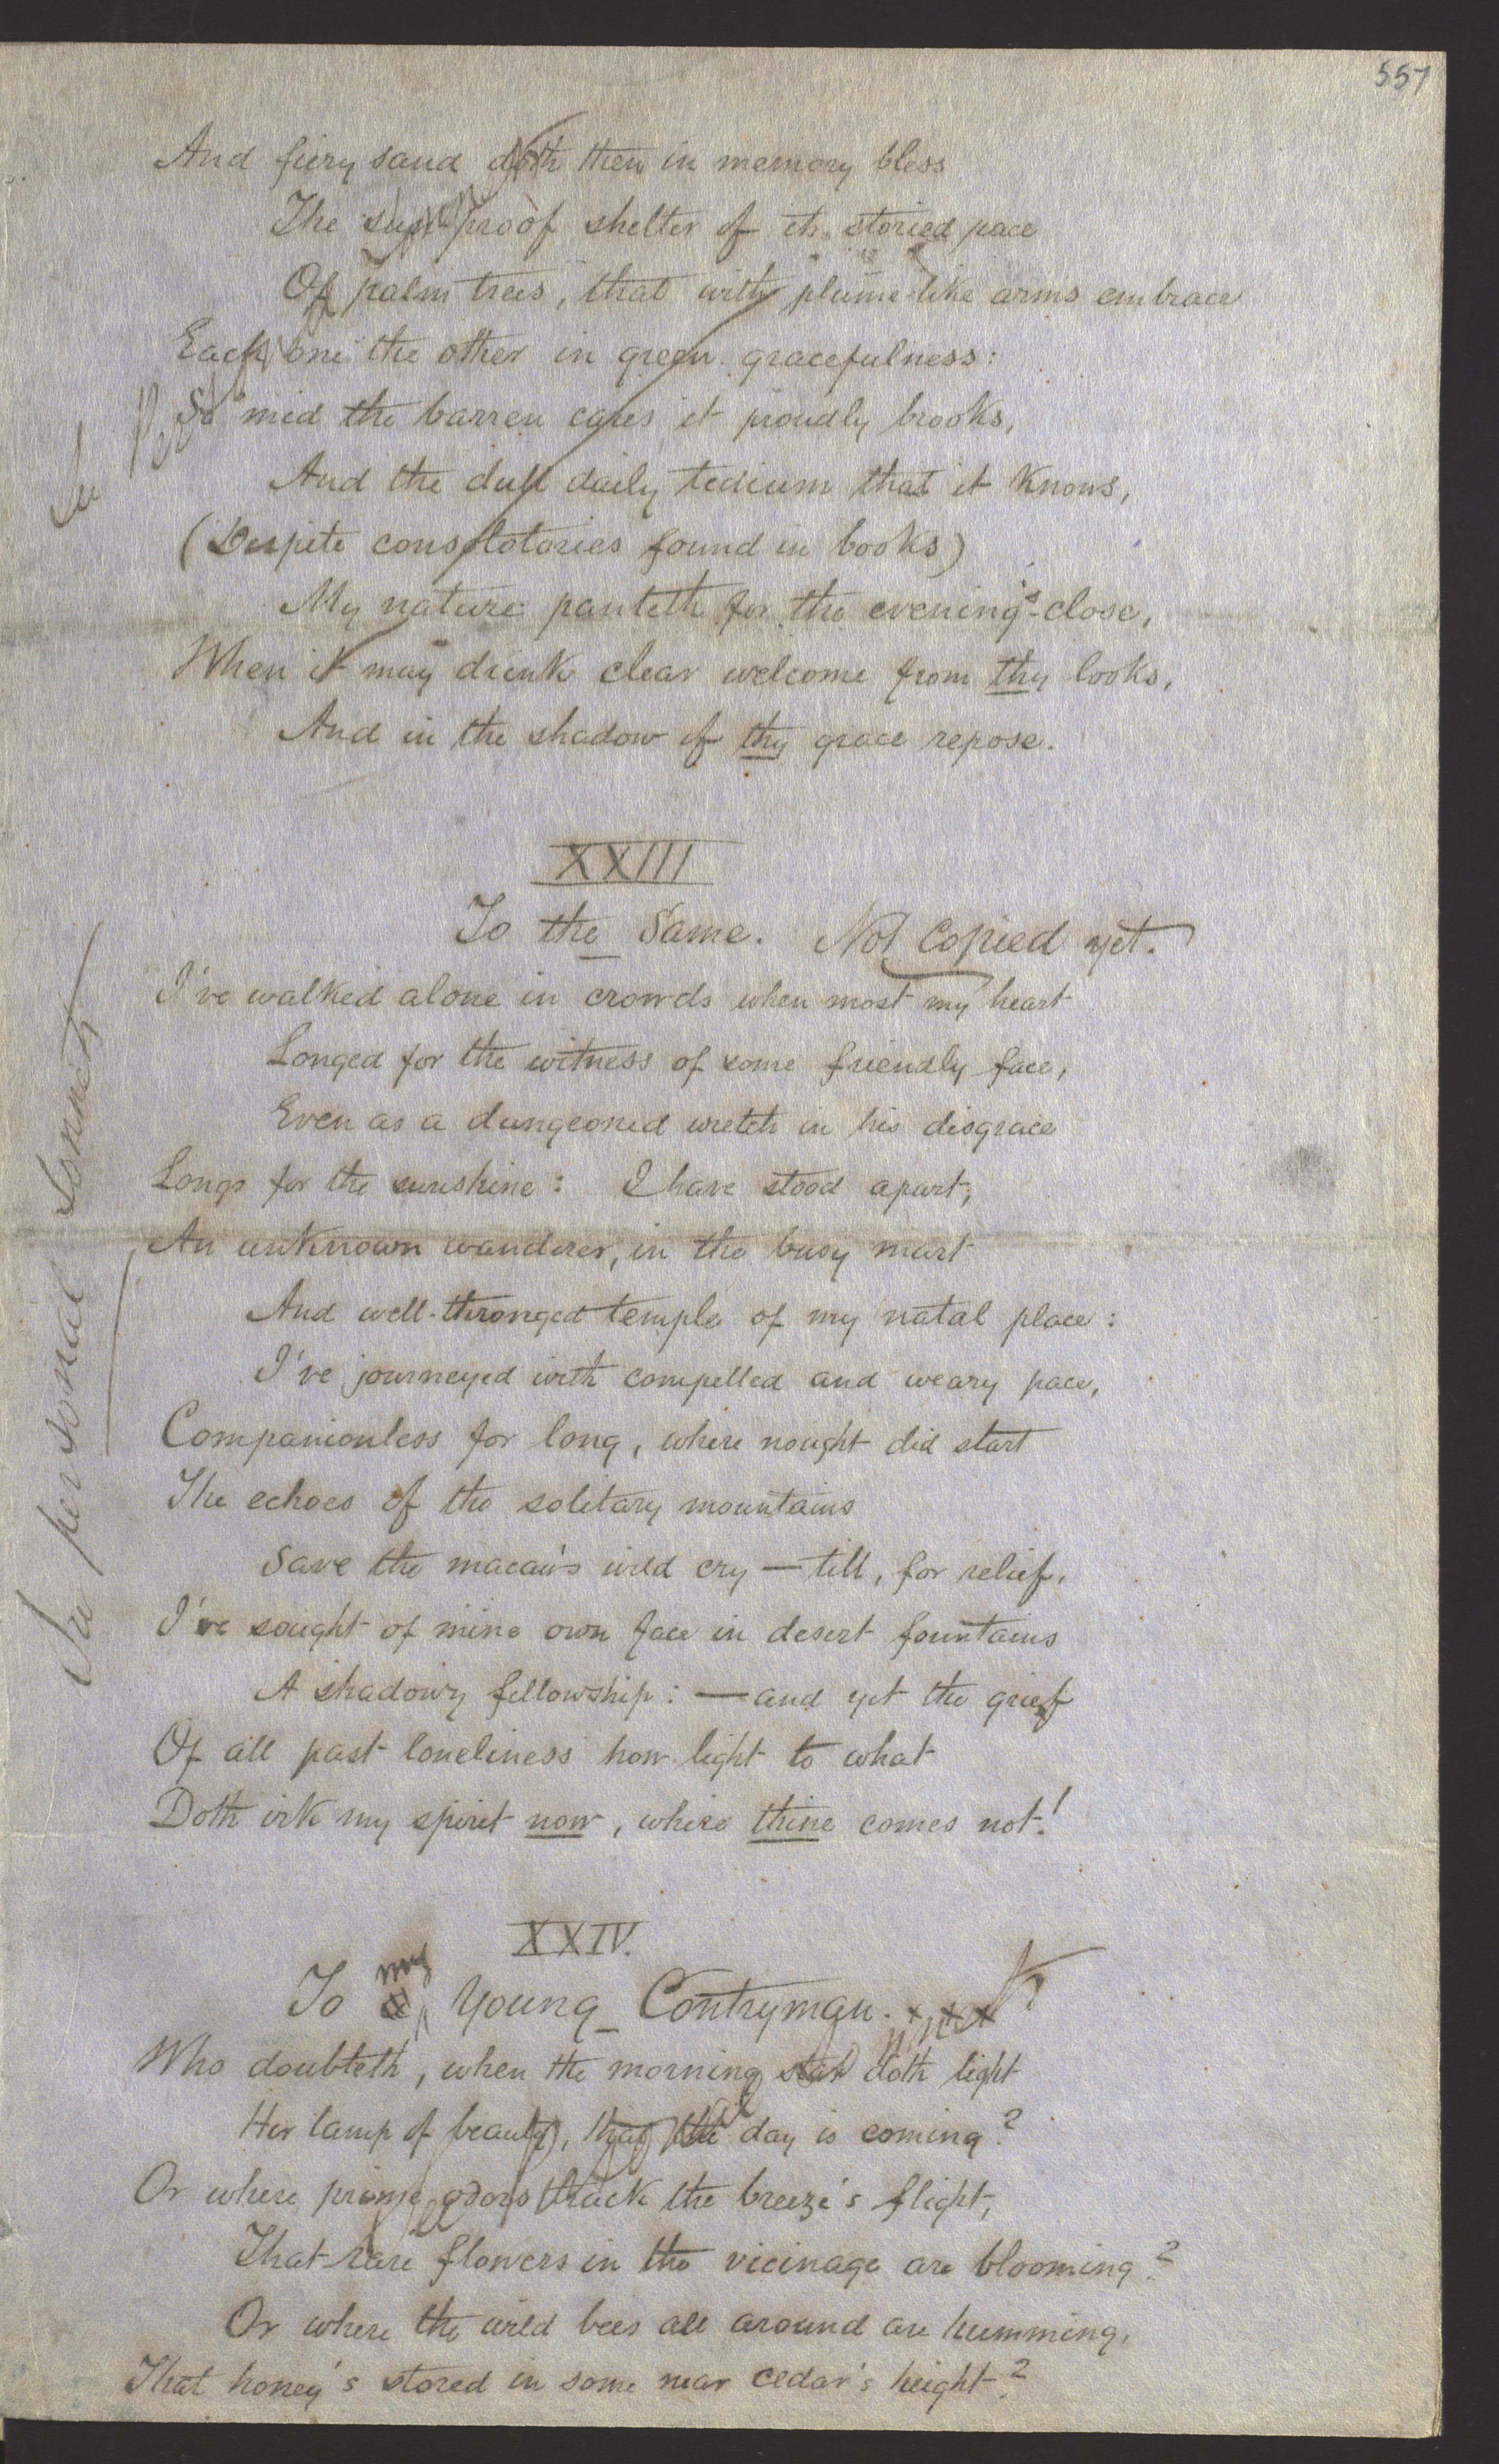 557
And fiery sand doth then in memory bless
The sun-proof shelter of its storied pace
Of palm trees, that with plume-like arms embrace
Each one the other in green gracefulness:
So mid the barren cares it proudly brooks,
And the dull daily tedium that it knows,
(Despite consolatories found in books)
My nature panteth for the evening's-close,
When it may drink clear welcome from thy looks,
And in the shadow of thy grace repose.
XXIII
To the Same. Not Copied yet.
I've walked alone in crowds when most my heart
Longed for the witness of some friendly face,
Even as a dungeoned wretch in his disgrace
Longs for the sunshine: I have stood apart,
An unknown wanderer, in the busy mart
And well-thronged temple of my natal place:
I've journeyed with compelled and weary pace,
Companionless for long, where nought did start
The echoes of the solitary mountains
Save the macaw's wild cry — till, for relief,
I've sought of mine own face in desert fountains
A shadowy fellowship: — and yet the grief
Of all past loneliness how light to what
Doth irk my spirit now, where thine comes not!
See personal Sonnets
XXIV.
my
To a Young Contryman. x x x
Who doubteth, when the morning star doth light
Her lamp of beauty, that the day is coming?
Or where prime odors track the breeze's flight,
That rare flowers in the vicinage are blooming?
Or where the wild bees all around are humming,
That honey's stored in some near cedar's height?